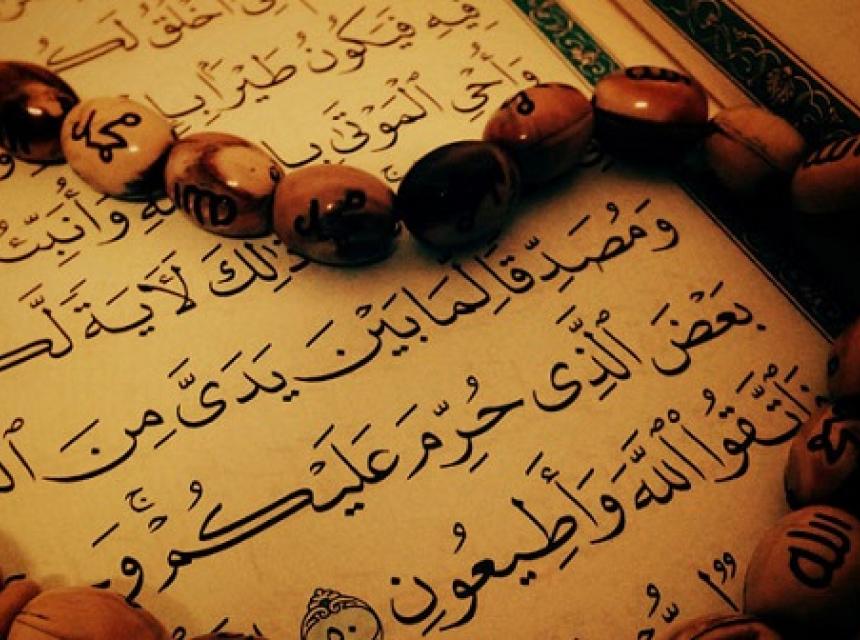 أَخْلُقُ لَكُ
فِيهِ فَيَكُونُ طَيْرًا بِإِ
وَأُحْىِ ٱلْمَوْتَىٰ بِإِ
وَأُنَبِّئُ
ذَٰلِكَ لَأَيَةً لَّكُ
وَمُصَدِّقًا لِّمَا بَيْنَ يَدَىَّ مِنَ ٱل
بَعْضَ ٱلَّذِى حُرِّمَ عَلَيْكُمْ ۚ وَ
فَٱتَّقُوا۟ ٱللَّهَ وَأَطِيعُونِ ٥٠
محمد
الله
محمد
الله